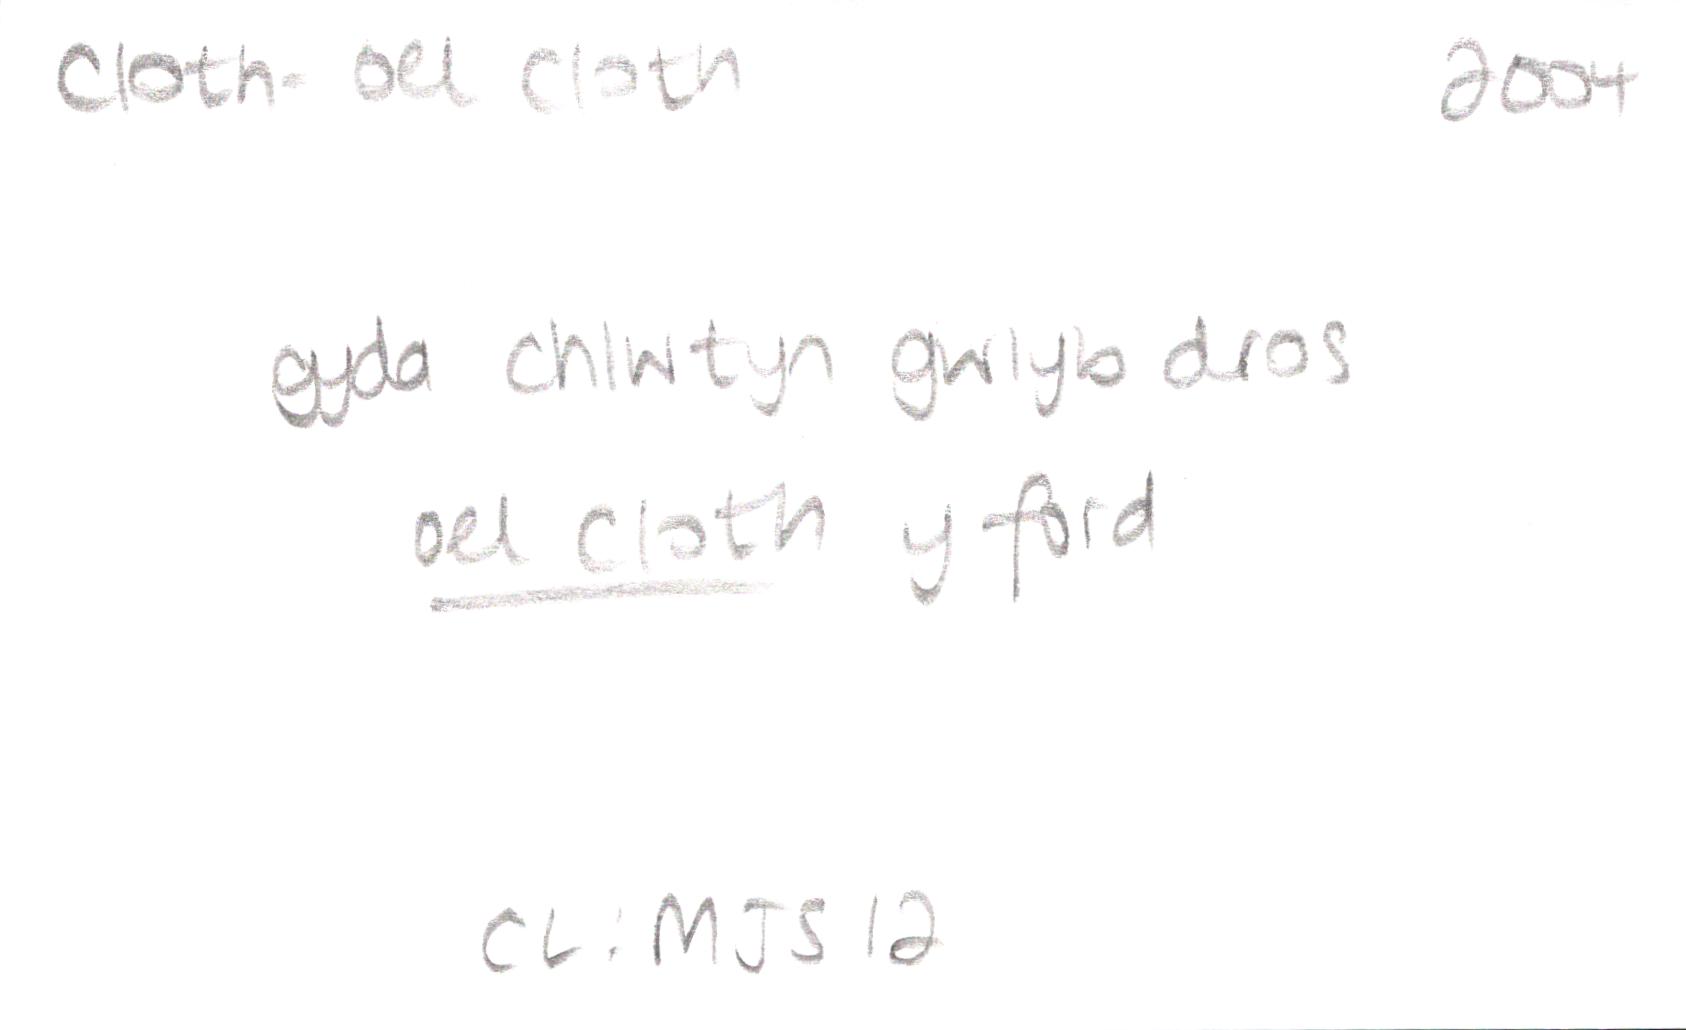 cloth- oel cloth 2004
gyda chlwtyn gwlyb dros
oel cloth y ford
CL: MJS 12